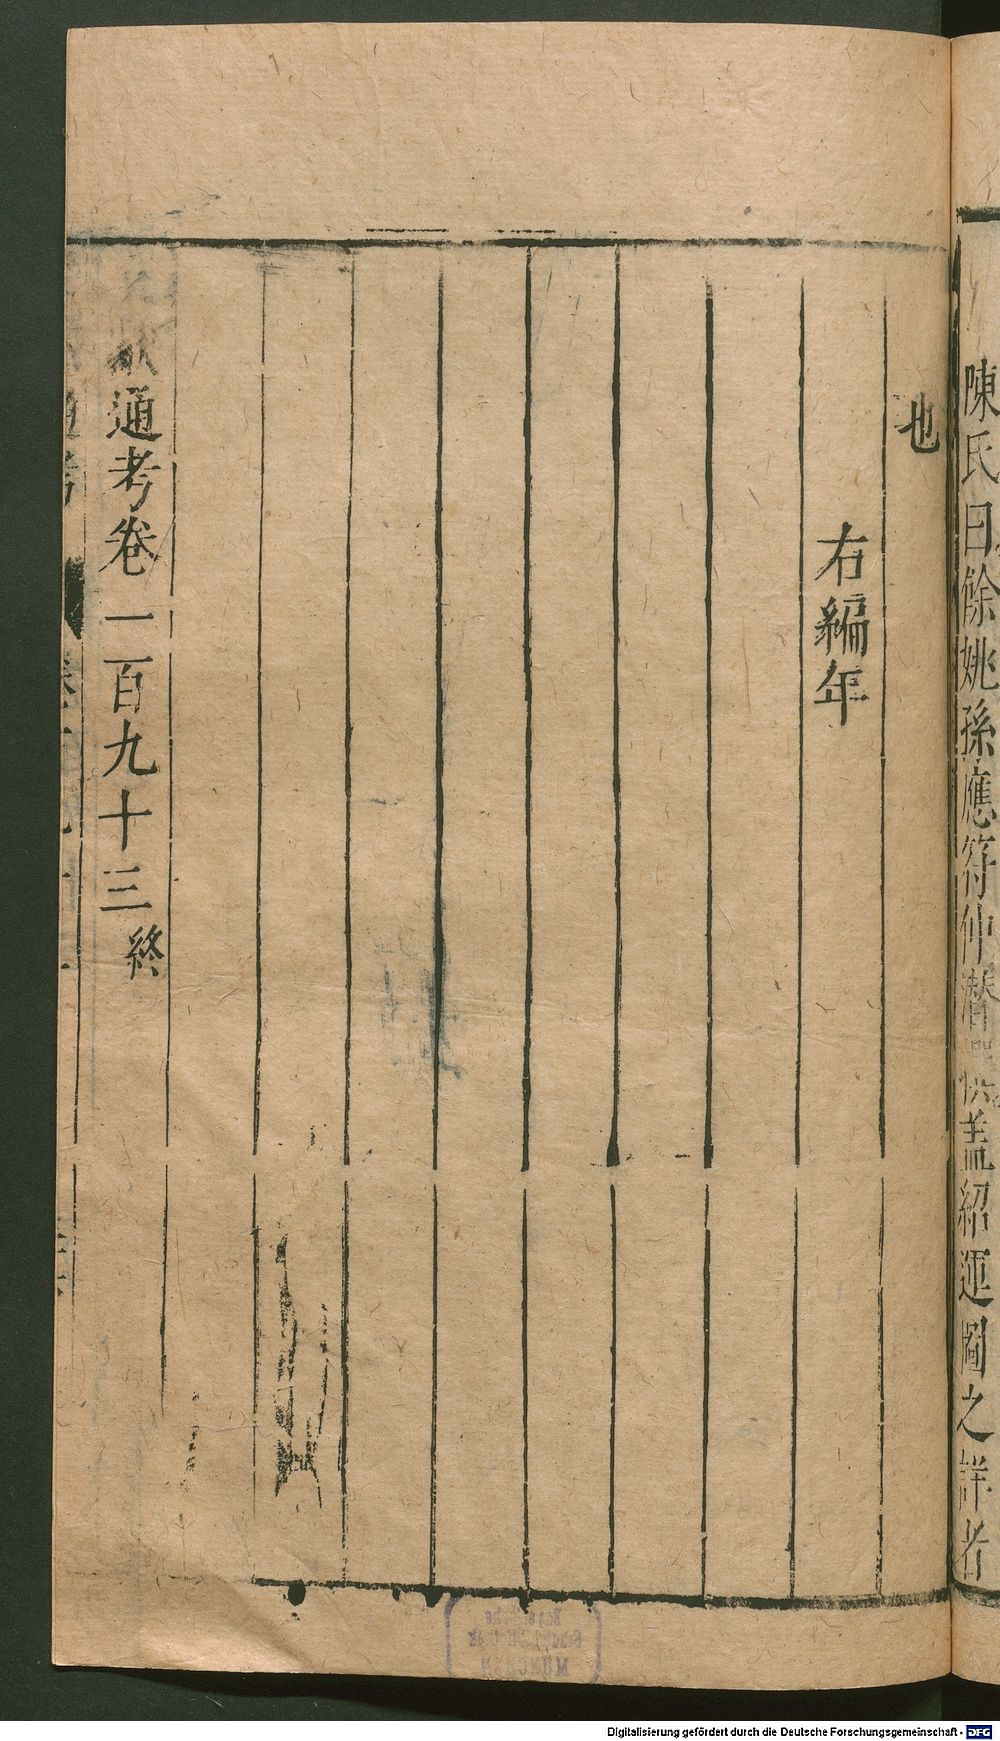 陳氏曰餘姚孫應符仲潛撰蓋紹運圖之詳者
也
右編年
獻通考卷一百九十三終
Digitalisierung gefördert durch die Deutsche Forschungsgemeinschaft - DFG